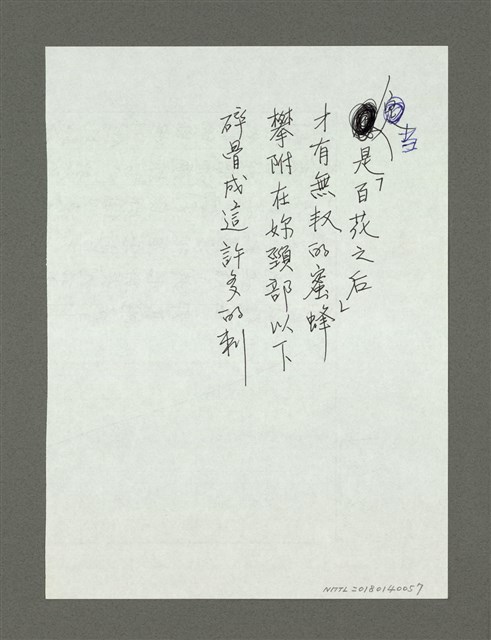 当是「百花之后」
才有無叔的蜜蜂
攀附在妳頸部以下
碎骨成這許多的刺
NMTL20180140057